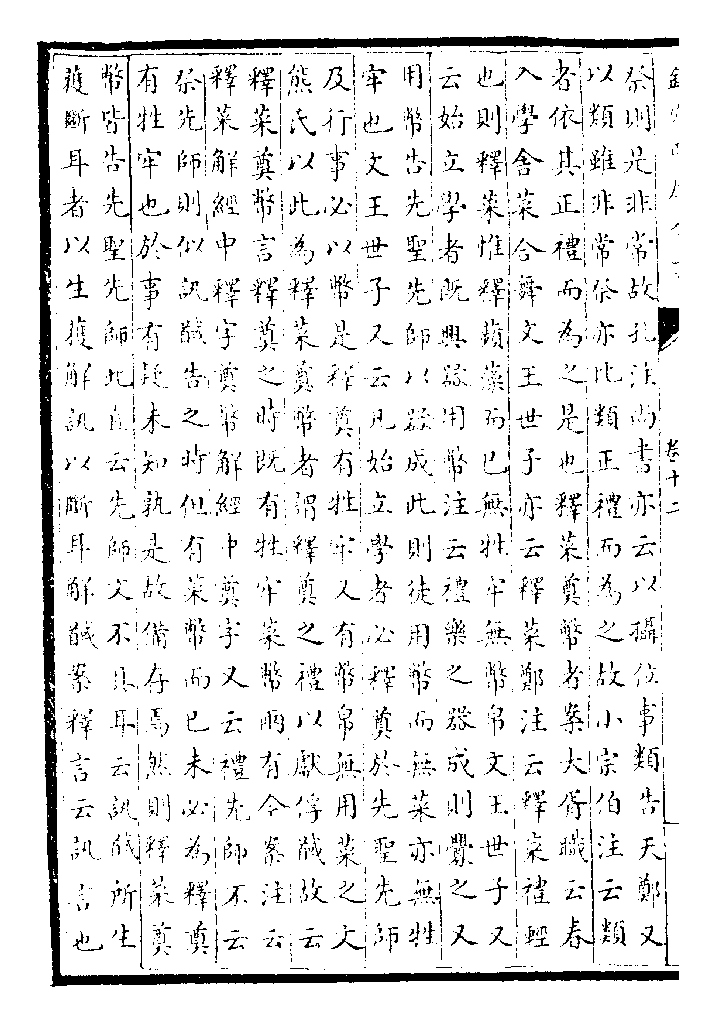 祭則是非常故孔注尚書亦云以攝位事類告天鄭又
以類雖非常祭亦比類正禮而為之故小宗伯注云類
者依其正禮而為之是也釋菜奠幣者案大胥職云春
入學舍菜合舞文王世子亦云釋菜鄭注云釋菜禮輕
也則釋菜惟釋蘋藻而已無牲牢無幣帛文王世子又
云始立學者既興器用幣注云禮樂之器成則釁之又
用幣告先聖先師以器成此則徒用幣而無菜亦無牲
牢也文王世子又云凡始立學者必釋奠於先聖先師
及行事必以幣是釋奠有牲牢又有幣帛無用菜之文
熊氏以此為釋菜奠幣者謂釋奠之禮以獻俘馘故云
釋菜奠幣言釋奠之時既有牲牢菜幣兩有今案注云
釋菜解經中釋字奠幣解經中奠字又云禮先師不云
祭先師則似訊馘告之時但有菜幣而已未必為釋奠
有牲牢也於事有疑未知孰是故備存焉然則釋菜奠
幣皆告先聖先師此直云先師文不具耳云訊馘所生
獲斷耳者以生獲解訊以斷耳解馘案釋言云訊言也
卷十二